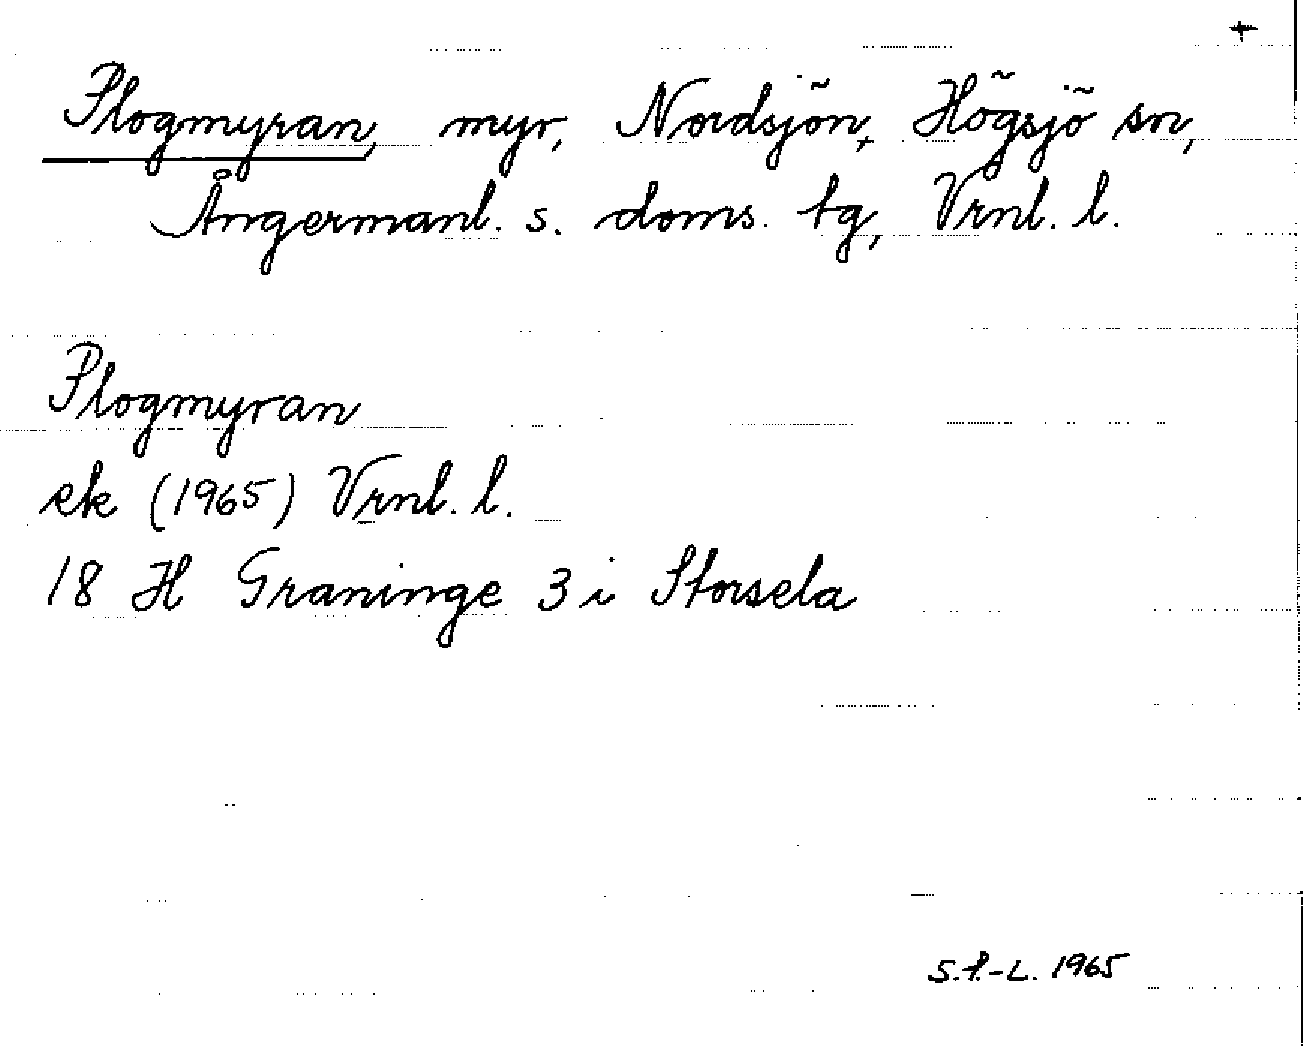 +
Plogmyran, myr, Nordsjön, Högsjö sn,
Ångermanl. s. doms. tg, Vrnl. l.
Plogmyran
ek (1965) Vrnl. l.
18 H Graninge 3 i Storsela
1965